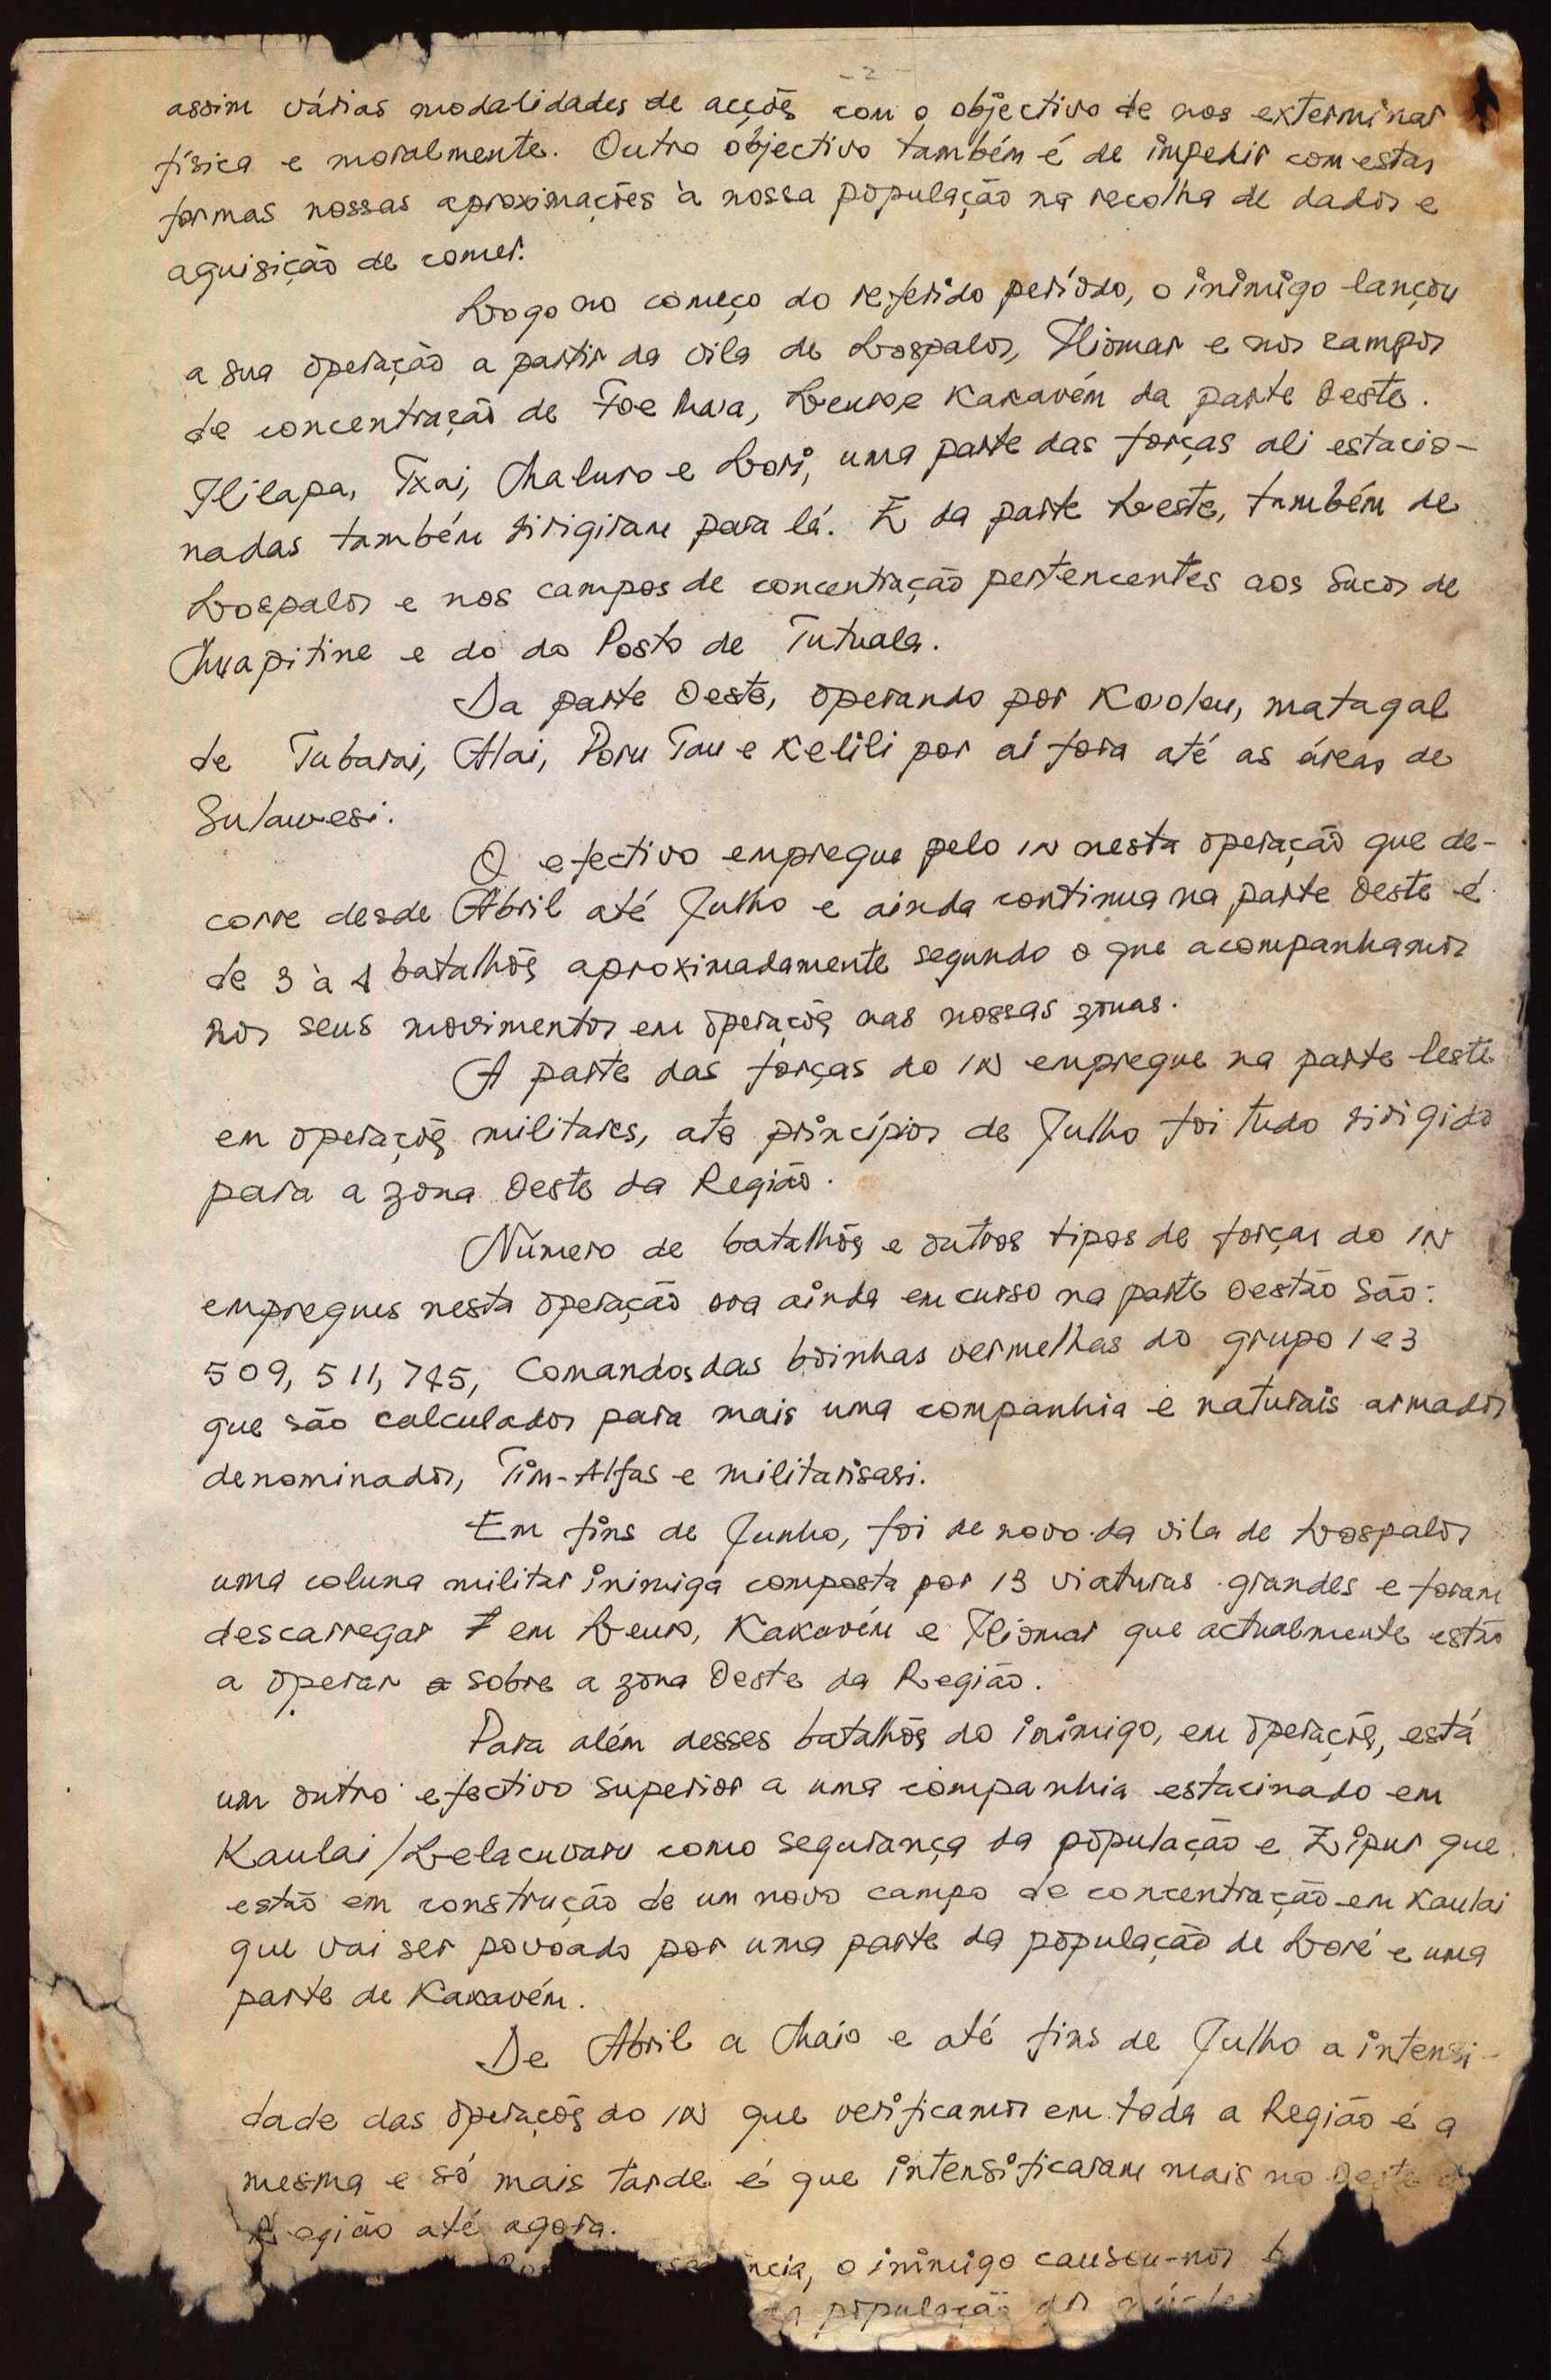 - 2 -
assim várias modalidades de acções com o objectivo de nos exterminar
física e moralmente. Outro objectivo também é de impedir com estas
formas nossas aproximações à nossa população na recolha de dados e
aquisição de comer.
Logo no começo do referido período, o inimigo lançou
a sua operação a partir da vila de Lospalos, Iliomar e nos campos
de concentração de Foe Mua, Leuro e Kakavém da parte Oeste.
Ililapa, Txai, Maluro e Loré, uma parte das forças ali estacio-
nadas também dirigiram para lá. E da parte Leste, também de
Lospalos e nos campos de concentração pertencentes aos Sucos de
Muapitine e do do Posto de Tutuala.
Da parte Oeste, operando por Kovoleu, matagal
de Tubarai, Alai, Poru Tau e Kelili por aí fora até as áreas de
Sulawesi.
O efectivo empregue pelo IN nesta operação que de-
corre desde Abril até Julho e ainda continua na parte Oeste é
de 3 à 4 batalhões aproximadamente segundo o que acompanhamos
nos seus movimentos em operações nas nossas zonas.
A parte das forças do IN empregue na parte leste
em operações militares, até princípios de Julho foi tudo dirigido
para a zona Oeste da Região.
Número de batalhões e outros tipos de forças do IN
empregues nesta operação ora ainda em curso na parte Oestão são:
509, 511, 745, Comandos das boinhas vermelhas do grupo 1 e 3
que são calculados para mais uma companhia e naturais armados
denominados, Tim-Alfas e militarisasi.
Em fins de Junho, foi de novo da vila de Lospalos
uma coluna militar inimiga composta por 13 viaturas grandes e foram
descarregar em Leuro, Kakavém e Iliomar que actualmente estão
a operar sobre a zona Oeste da Região.
Para além desses batalhões do inimigo, em operações, está
um outro efectivo superior a uma companhia estacinado em
Kaulai/Lelacuvaru como segurança da população e Zipur que
estão em construção de um novo campo de concentração em Kaulai
que vai ser povoado por uma parte da população de Loré e uma
parte de Kakavém.
De Abril a Maio e até fins de Julho a intensi-
dade das operações do IN que verificamos em toda a Região é a
mesma e só mais tarde é que intensificaram mais no Oeste
Região até agora.
o inimigo causou-nos
população